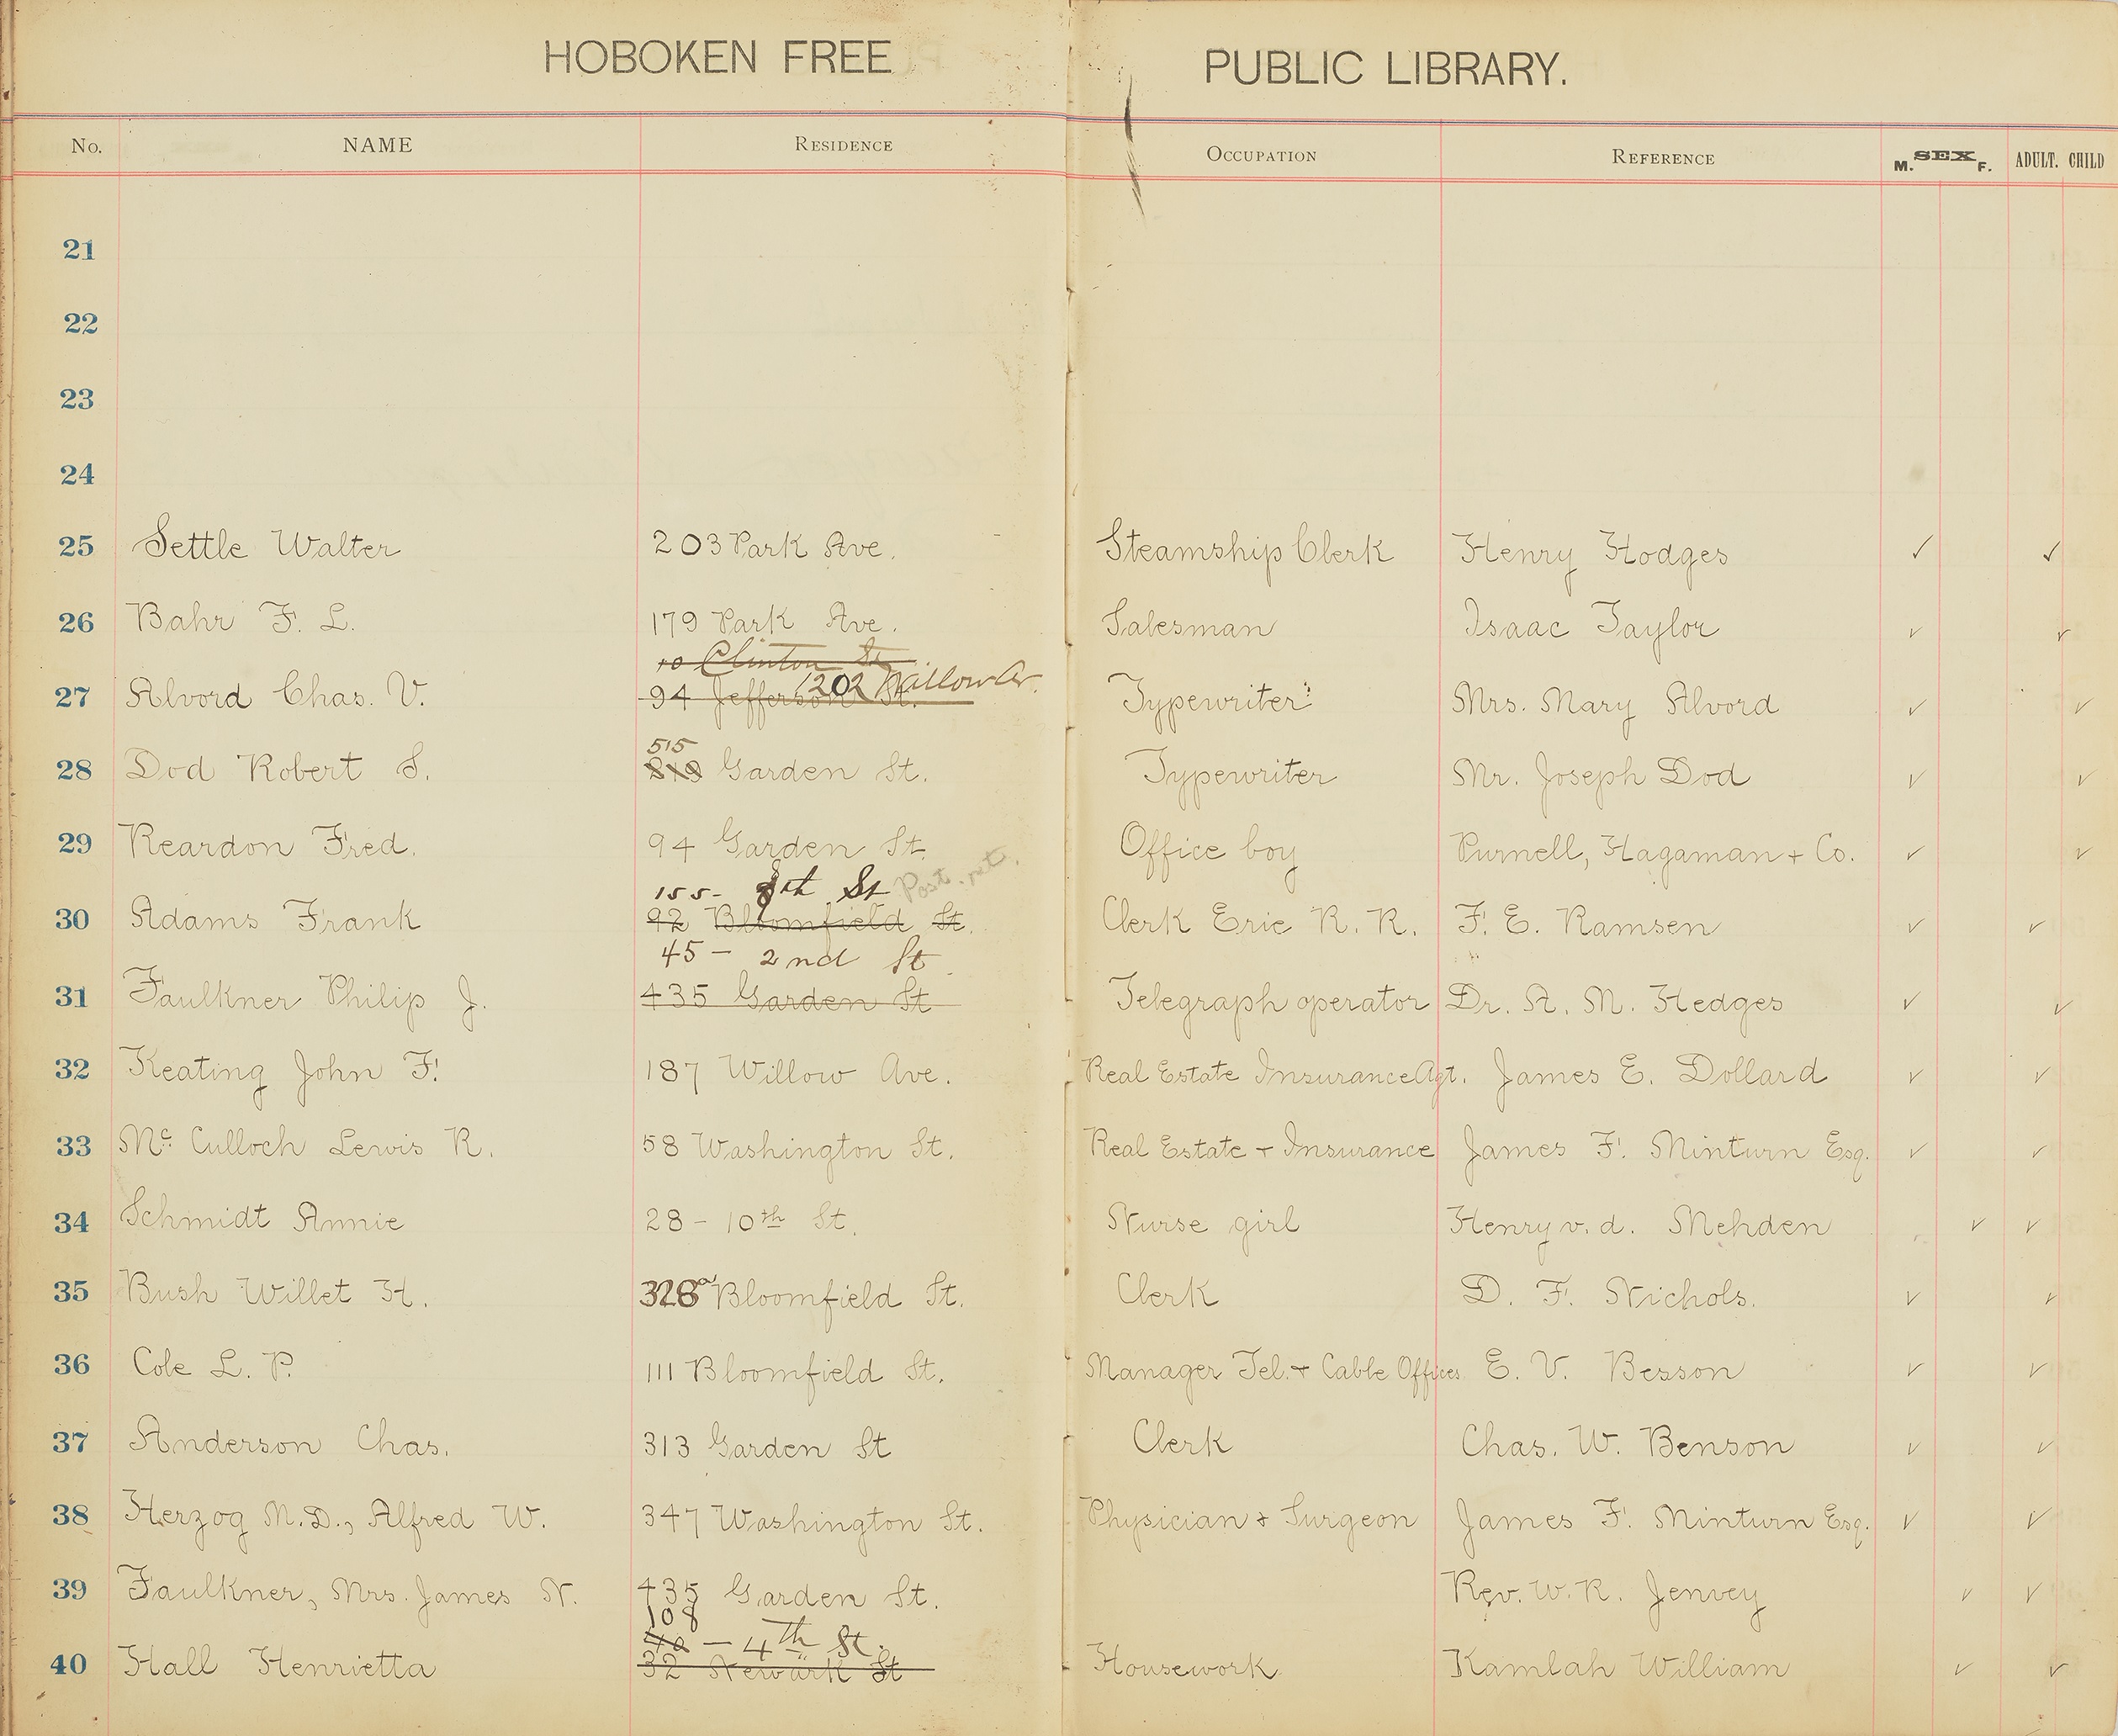 HOBOKEN FREE PUBLIC LIBRARY.
No. NAME RESIDENCE OCCUPATION REFERENCE M. SEX F. ADULT. CHILD
21
22
23
24
25 Settle Walter 203 Park Ave. Steamship Clerk Henry Hodges ✓ ✓
26 Bahr F. L. 179 Park Ave. Salesman Isaac Taylor ✓ ✓
10 Clinton St
1202 Willow Av.
27 Alvord Chas. V. 94 Jefferson St. Typewriter Mrs. Mary Alvord ✓ ✓
515
28 Dod Robert S. Garden St. Typewriter Mr. Joseph Dod ✓ ✓
29 Reardon Fred. 94 Garden St. Office boy Purnell, Hagaman + Co. ✓ ✓
155- 8th St
30 Adams Frank 92 Bloomfield St. Clerk Erie R. R. F. E. Ramsen ✓ ✓
45 - 2nd St
31 Faulkner Philip J. 435 Garden St Telegraph operator Dr. A. M. Hedges ✓ ✓
32 Keating John F. 187 Willow Ave. Real Estate Insurance Agt. James E. Dollard ✓ ✓
33 Mc. Culloch Lewis R. 58 Washington St. Real Estate + Insurance James F. Minturn Esq. ✓ ✓
34 Schmidt Annie 28 - 10th St. Nurse girl Henry v. d. Mehden ✓ ✓
35 Bush Willet H. 328 Bloomfield St. Clerk D. F. Nichols. ✓ ✓
36 Cole L. P. 111 Bloomfield St. Manager Tel. + Cable Offices E. V. Besson ✓ ✓
37 Anderson Chas. 313 Garden St Clerk Chas. W. Benson ✓ ✓
38 Herzog M.D., Alfred W. 347 Washington St. Physician + Surgeon James F. Minturn Esq. ✓ ✓
39 Faulkner, Mrs. James N. 435 Garden St. Rev. W. R. Jenvey ✓ ✓
108
40 - 4th St.
40 Hall Henrietta 32 Newark St Housework Kamlah William ✓ ✓